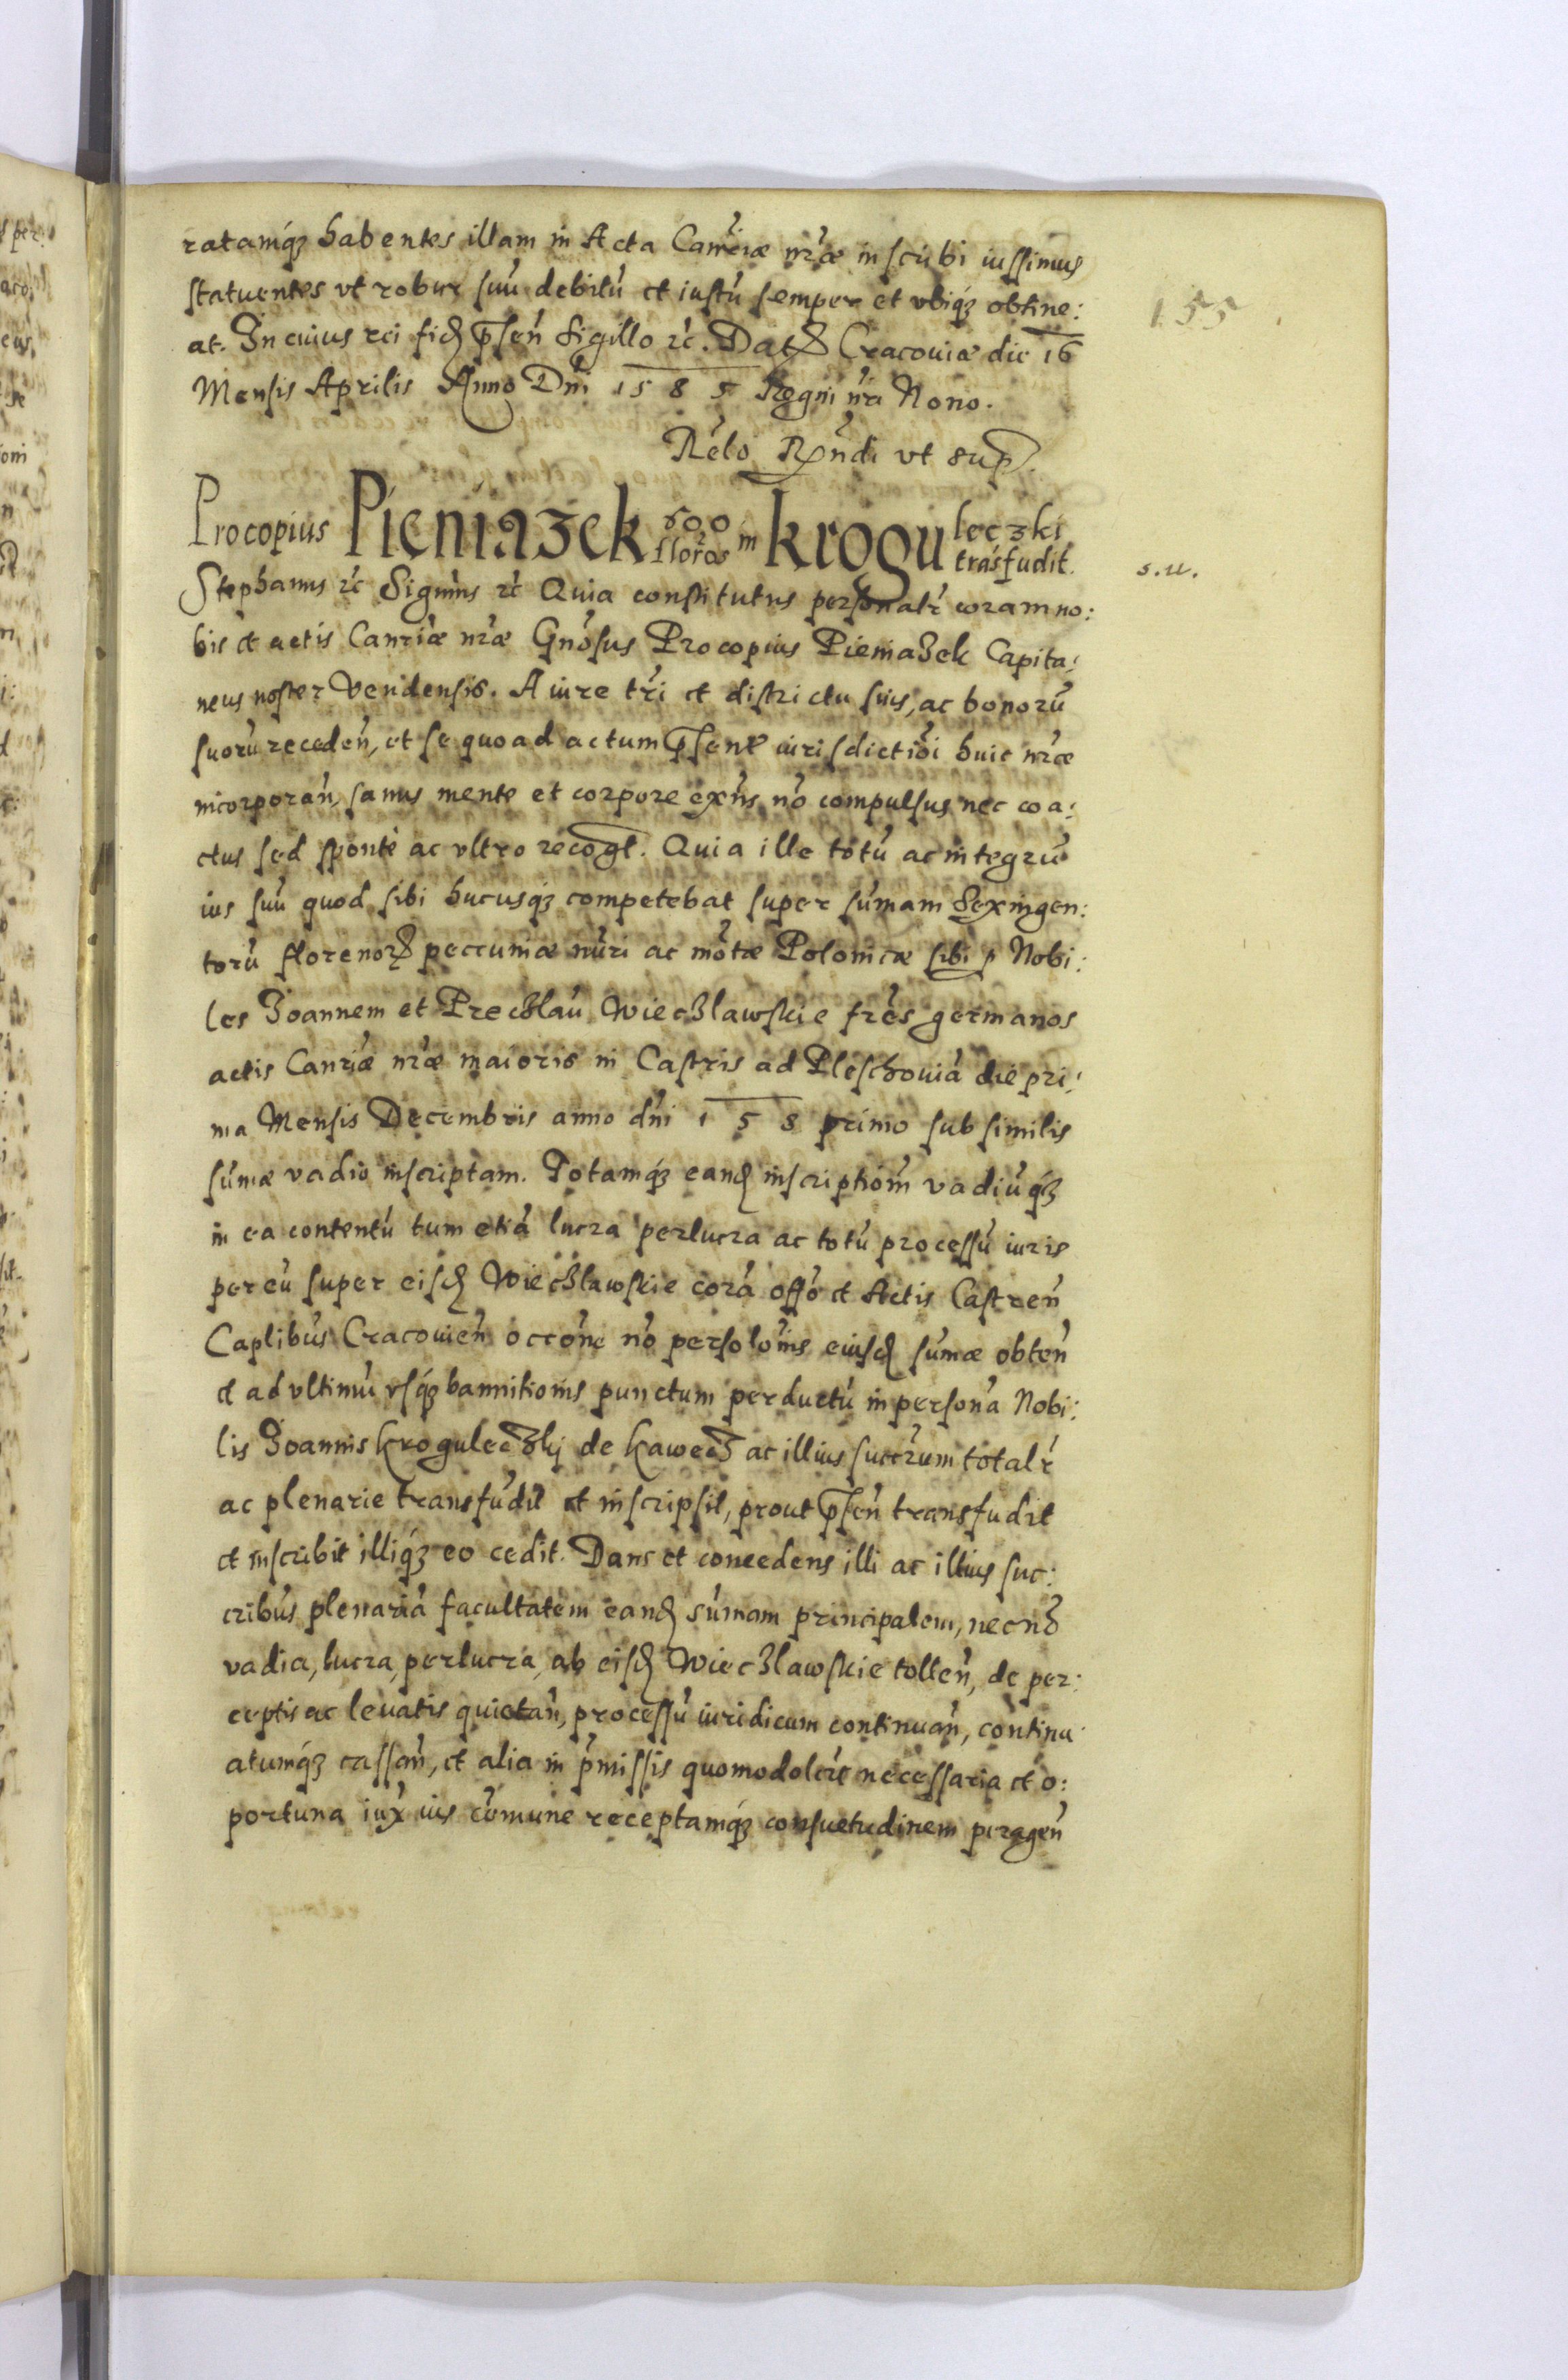 ratamq₃ habentes illam in Acta Canc̃iæ nr̃æ inscribi iussimus
statuentes vt robur suũ debitũ et iustũ semper et vbiq₃ obtine:
at. In cuius rei fid̃ p̃sen̄ Sigillo ꝛc̃. Datꝝ Cracouiæ die 16
Mensis Aprilis Anno Dñi 1585 Regni nr̃i Nono.
Rẽlo Rx̃ndi vt sup̃.
155
Procopius Pieniazek 600 floros in kroguleczki trãsfudit.
s.u.
Stephanus ꝛc̃ Significam̃s ꝛc̃ Quia constitutus personalr̃ coram no:
bis et actis Canr̃iæ nr̃æ Gñosus Procopius Pieniazek Capita:
neus noster Vendensis. A iure tr̃i et districtu suis, ac bonorũ
suorũ receden̄, et se quoad actum p̃sent̃ iurisdictiõi huic nr̃æ
incorporan̄, sanus mente et corpore exñs, nõ compulsus nec coa:
ctus sed spontè ac vltro recogt̃. Quia ille totũ ac integrũ
ius suũ quod sibi hucusq₃ competebat super sum̃am Sexingen:
torũ florenorꝝ peccuniæ nũri ac mõtæ Polonicæ sibi p Nobi:
les Joannem et Preczlaũ Wieczlawskie fr̃es germanos
actis Canr̃iæ nr̃æ maioris in Castris ad Pleschouiã die pri:
ma Mensis Decembris anno dñi 1 5 8 primo sub similis
sum̃æ vadio inscriptam. Totamq₃ eand̃ inscriptiõm vadiũq₃
in ea contentũ tum etiã lucra perlucra ac totũ processũ iuris
per eũ super eisd̃ Wieczlawskie corã offõ et Actis Castren̄
Caplibũs Cracouien̄ occõne nõ persoloñis eiusd̃ sum̃æ obten̄
et ad vltimũ vsq₃ bannitionis punctum perductũ in personã Nobi:
lis Joannis kroguleczkj de kawecz ac illius succr̃um totalr̃
ac plenarie transfudit et inscripsit, prout p̃sen̄ transfudit
et inscribit illiq₃ eo cedit. Dans et concedens illi ac illius suc:
cribũs plenariã facultatem eand̃ sum̃am principalem, necnõ
vadia, lucra, perlucra, ab eisd̃ Wieczlawskie tollen̄, de per:
ceptis ac leuatis quietan̄, processũ iuridicum continuan̄, continu
atumq₃ cassan̄, et alia in p̃missis quomodolib̃t necessaria et o:
portuna iux̃ ius com̃une receptamq₃ consuetudinem peragen̄